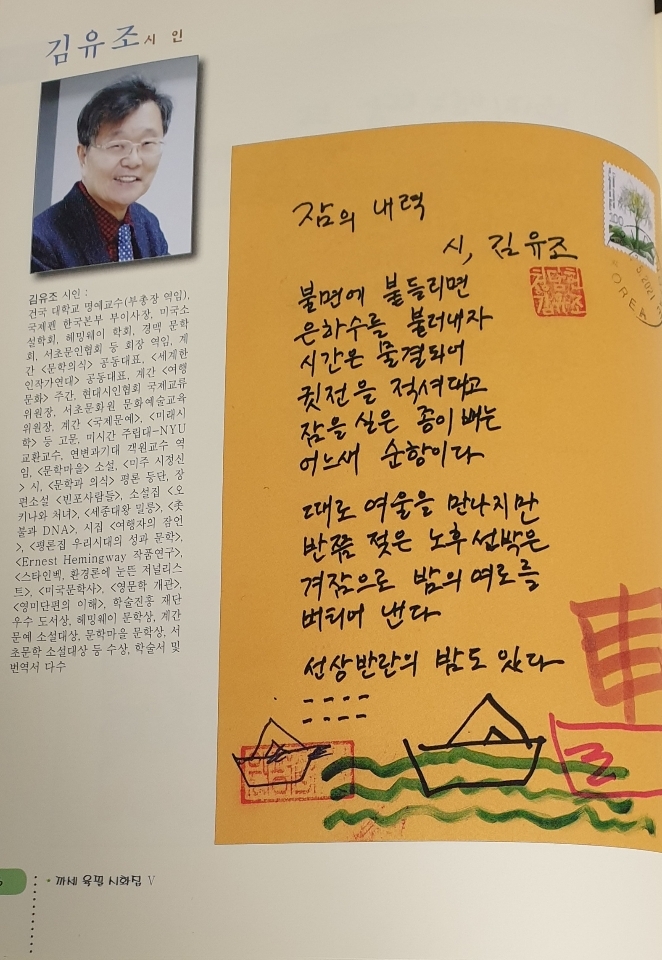 김유조 시 인
김유조 시인 :
건국 대학교 명예교수(부총장 역임),
국제펜 한국본부 부이사장, 미국소
설학회, 헤밍웨이 학회, 경맥 문학
회, 서초문인협회 등 회장 역임, 계
간 <문학의식> 공동대표, <세계한
인작가연대> 공동대표, 계간 <여행
문화> 주간, 현대시인협회 국제교류
위원장, 서초문화원 문화예술교육
위원장, 계간 <국제문예>, <미래시
학> 등 고문, 미시간 주립대-NYU
교환교수, 연변과기대 객원교수 역
임, <문학마을> 소설, <미주 시정신
> 시, <문학과 의식> 평론 등단, 장
편소설 <빈포사람들>, 소설집 <오
키나와 처녀>, <세종대왕 밀릉>, <촛
불과 DNA>, 시집 <여행자의 잠언
>, <평론집 우리시대의 성과 문학>,
<Ernest Hemingway 작품연구>,
<스타인벡, 환경론에 눈뜬 저널리스
트>, <미국문학사>, <영문학 개관>,
<영미단편의 이해>, 학술진흥 재단
우수 도서상, 헤밍웨이 문학상, 계간
문예 소설대상, 문학마을 문학상, 서
초문학 소설대상 등 수상, 학술서 및
번역서 다수
잠의 내력
시, 김유조
불면에 붙들리면
은하수를 불러내자
시간은 물결되어
귓전을 적셔대고
잠을 실은 종이배는
어느새 순항이다
때로 여울을 만나지만
반쯤 젖은 노후선박은
겨잠으로 밤의 여로를
버티어 낸다
선상반란의 밤도 있다
200
2021
KOREA
• 까세 육필 시화집 Ⅴ